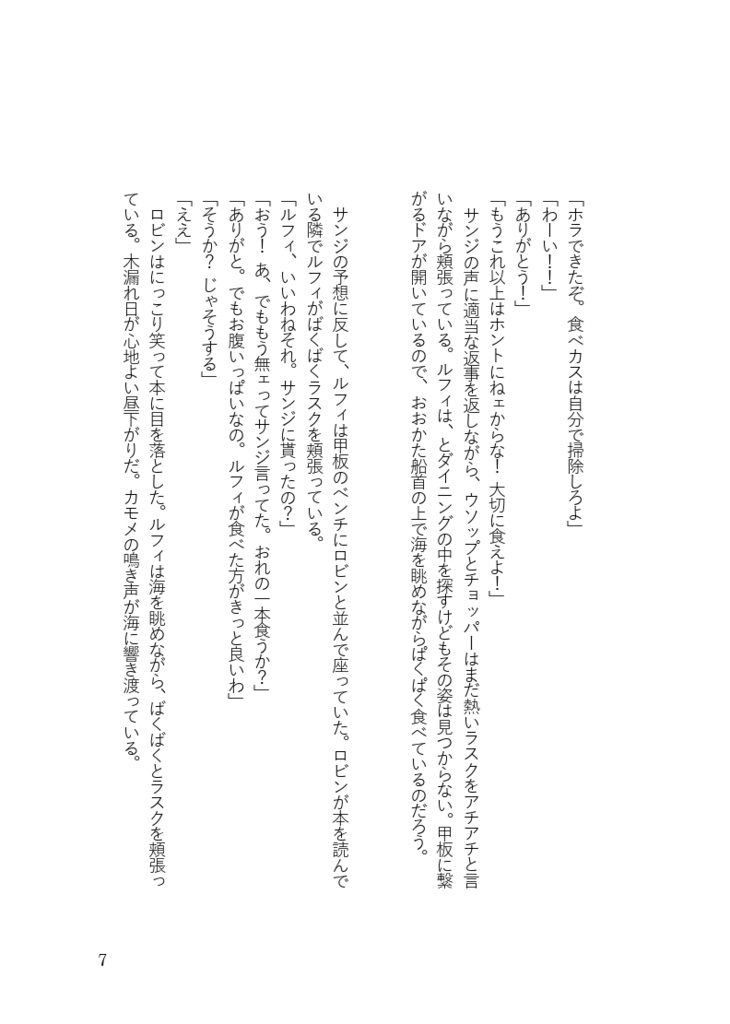 「ホラできたぞ。食べカスは自分で掃除しろよ」
「わーい！！」
「ありがとう！」
「もうこれ以上はホントにねェからな！ 大切に食えよ！」
　サンジの声に適当な返事を返しながら、ウソップとチョッパーはまだ熱いラスクをアチアチと言
いながら頬張っている。ルフィは、とダイニングの中を探すけどもその姿は見つからない。甲板に繋
がるドアが開いているので、おおかた船首の上で海を眺めながらぱくぱく食べているのだろう。
　サンジの予想に反して、ルフィは甲板のベンチにロビンと並んで座っていた。ロビンが本を読んで
いる隣でルフィがばくばくラスクを頬張っている。
「ルフィ、いいわねそれ。サンジに貰ったの？」
「おう！ あ、でももう無ェってサンジ言ってた。おれの一本食うか？」
「ありがと。でもお腹いっぱいなの。ルフィが食べた方がきっと良いわ」
「そうか？ じゃそうする」
「ええ」
　ロビンはにっこり笑って本に目を落とした。ルフィは海を眺めながら、ばくばくとラスクを頬張っ
ている。木漏れ日が心地よい昼下がりだ。カモメの鳴き声が海に響き渡っている。
7